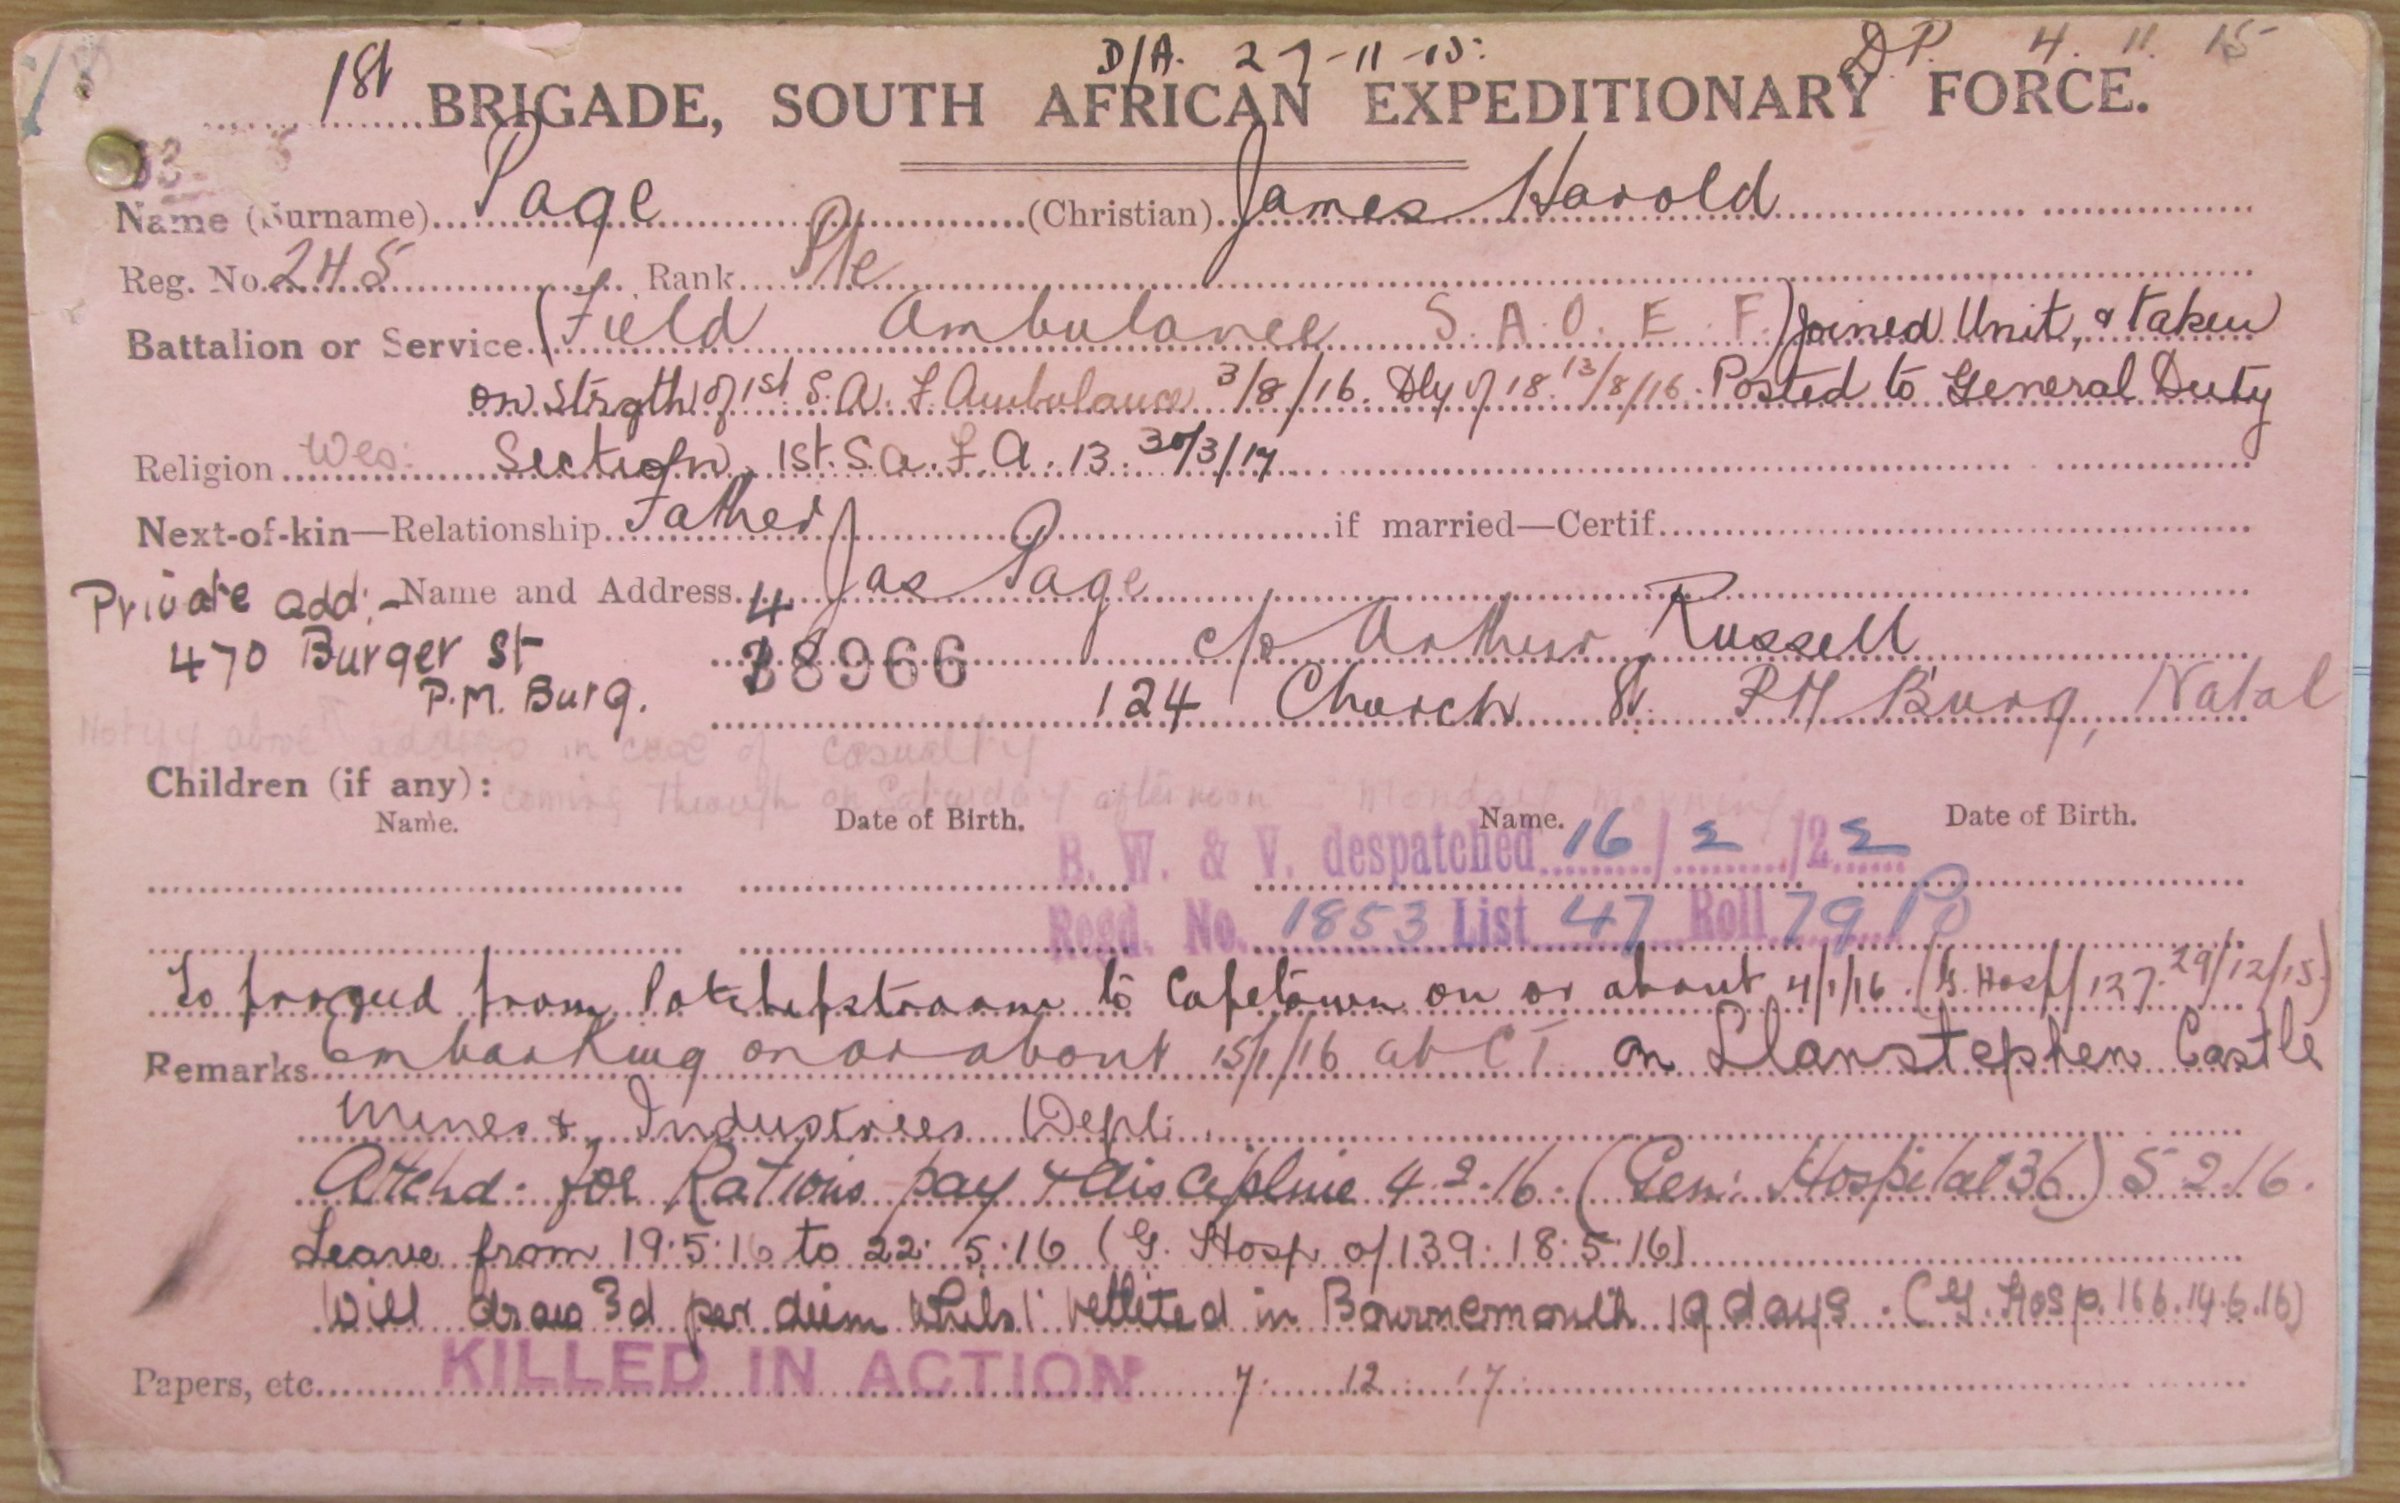 D/A. 27-11-15. D.P. 4. 11. 15
1st BRIGADE, SOUTH AFRICAN EXPEDITIONARY FORCE.
Name (Surname) Page (Christian) James Harold
Reg. No. 245 Rank Pte
Battalion or Service (Field Ambulance S.A.O.E.F.) Joined Unit, & taken
on strgth of 1st S.A.F. Ambulance 3/8/16. Dly of 18. 13/8/16. Posted to General Duty
Religion Wes: Section, 1st. S.a.F.A. 13. 30/3/17
Next-of-kin—Relationship Father if married—Certif.
Private add:- Name and Address Jas Page
470 Burger St 4 38966 c/o Arthur Russell
P.M. Burg. 124 Church St. P M Burg, Natal
Notify above address in case of casualty
Children (if any): coming through on Saturday afternoon Monday morning
Name. Date of Birth. Name. Date of Birth.
B. W. & V. despatched 16/2/22
Regd. No. 1853 List 47 Roll 79
To proceed from Potchefstroom to Capetown on or about 4/1/16. (G. Hosp/127. 29/12/15)
Remarks Embarking on or about 15/1/16 at C T on Llanstephen Castle
Mines & Industries Dept.
Attchd. for Rations pay & discipline 4.2.16. (Gen: Hospital 36) 5 2 16.
Leave from 19.5.16 to 22.5.16 (G. Hosp of 139. 18.5.16)
Will draw 3d per diem whilst billeted in Bournemouth 19 days. (G. Hosp. 166. 14.6.16)
Papers, etc. KILLED IN ACTION 7. 12. 17.